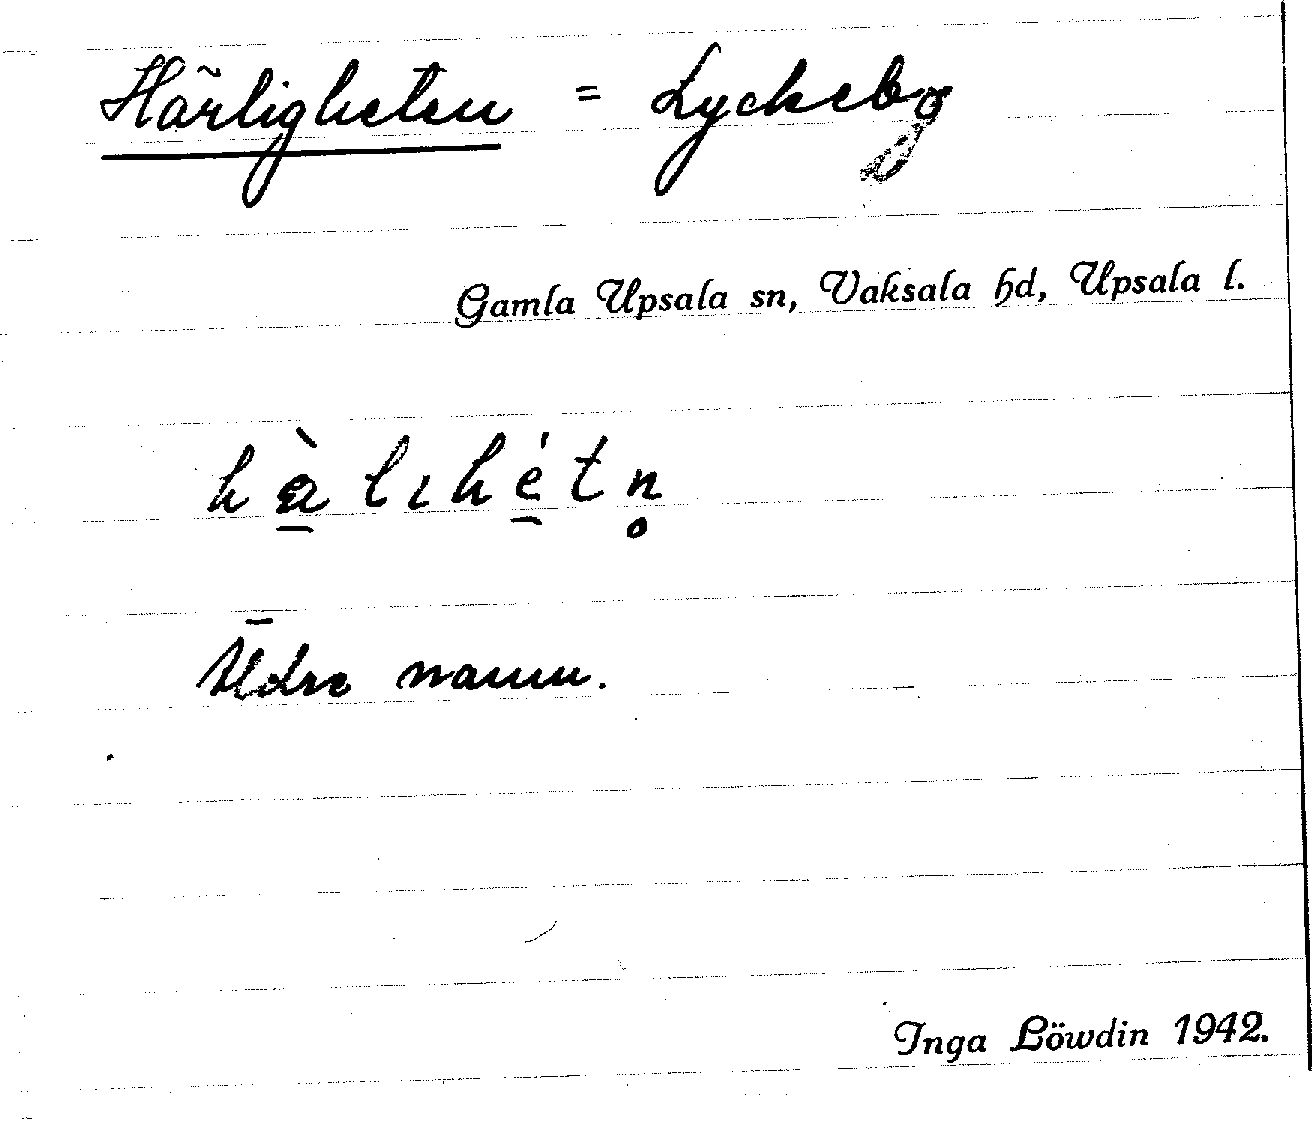 Härligheten = Lyckebo
Gamla Upsala sn, Vaksala hd, Upsala l.
hæ̀lıhétn̥
Äldre namn.
Inga Löwdin 1942.